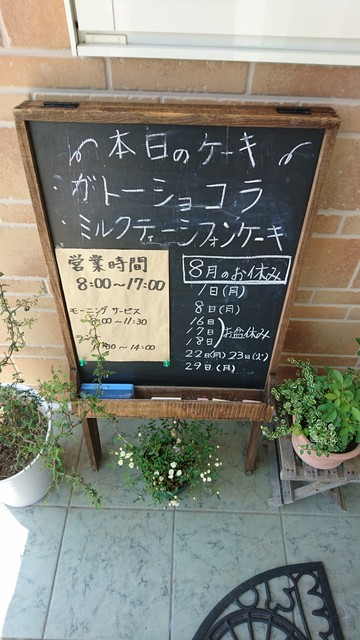 本日のケーキ
・ガトーショコラ
・ミルクティーシフォンケーキ
営業時間
8:00〜17:00
モーニング サービス
:00〜11:30
ラン
:00〜14:00
8月のお休み
1日(月)
8日(月)
16日
17日 お盆休み
18日
22日(月) 23日(火)
29日(月)